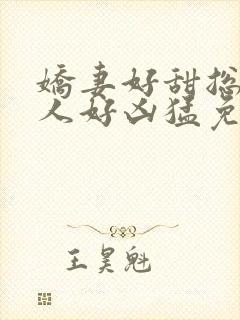 嬌妻好甜总
人好凶猛免
王昊魁